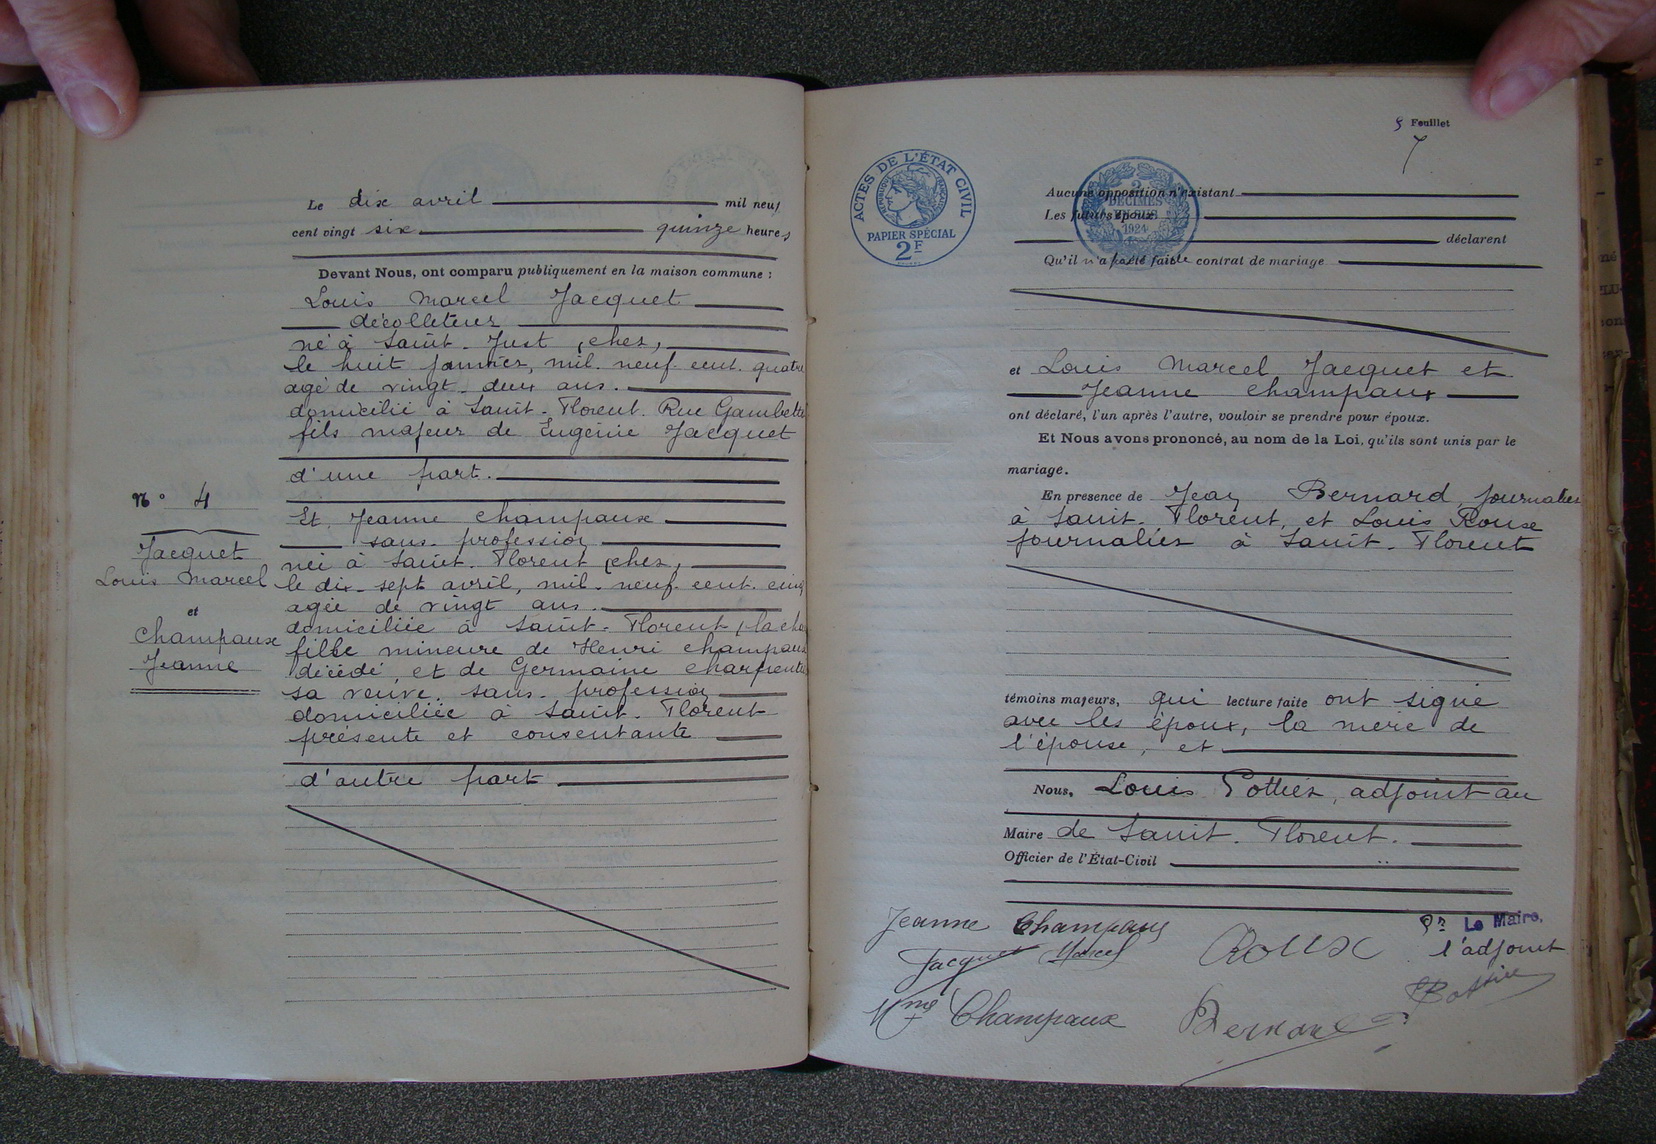 Le dix avril mil neuf
cent vingt six quinze heures
Devant Nous, ont comparu publiquement en la maison commune :
Louis Marcel Jacquet
décolleteur
né à Saint-Just (cher)
le huit janvier, mil-neuf-cent-quatre
agé de vingt-deux ans.
domicilié à Saint-Florent. Rue Gambetta
fils majeur de Eugénie Jacquet
d'une part.
N° 4
Jacquet
Louis Marcel
et
Champaux
Jeanne
Et Jeanne Champaux
sans profession
née à Saint-Florent (cher)
le dix-sept avril, mil-neuf-cent-cinq
agée de vingt ans.
domiciliée à Saint-Florent
fille mineure de Henri Champaux
décédé, et de Germaine Charpentier
sa veuve, sans profession
domiciliée à Saint-Florent
présente et consentante
d'autre part
ACTES DE L'ÉTAT CIVIL
RÉPUBLIQUE FRANÇAISE
PAPIER SPÉCIAL
2F
2
DÉCIMES
1924
5 Feuillet
7
Aucune opposition n'existant
Les futurs époux
déclarent
Qu'il n'a pas été fait de contrat de mariage
et Louis Marcel Jacquet et
Jeanne Champaux
ont déclaré, l'un après l'autre, vouloir se prendre pour époux.
Et Nous avons prononcé, au nom de la Loi, qu'ils sont unis par le
mariage.
En présence de Jean Bernard, journalier
à Saint-Florent, et Louis Roux
journalier à Saint-Florent
témoins majeurs, qui lecture faite ont signé
avec les époux, la mère de
l'épouse, et
Nous, Louis Pottier, adjoint au
Maire de Saint-Florent.
Officier de l'État-Civil
Jeanne Champaux
Jacquet Marcel
Roux
Pr Le Maire,
l'adjoint
Pottier
Mme Champaux
Bernard